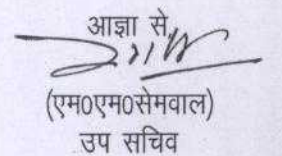 आज्ञा से,
(एम0एम0सेमवाल)
उप सचिव